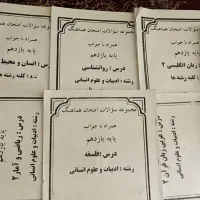 مجموعه سؤالات امتحان هماهنگ
همراه با جواب
پایه یازدهم
درس: زبان انگلیسی ۲
کلیه رشته ها
مجموعه سؤالات امتحان هماهنگ
همراه با جواب
پایه یازدهم
درس: روانشناسی
رشته: ادبیات و علوم انسانی
همراه با جواب
پایه یازدهم
درس: انسان و محیط
کلیه رشته ها
درس: عربی زبان قرآن ۲
رشته: ادبیات و علوم انسانی
مجموعه سؤالات امتحان هماهنگ
همراه با جواب
پایه یازدهم
درس: فلسفه
رشته: ادبیات و علوم انسانی
پایه یازدهم
درس: ریاضی و آمار ۲
رشته: ادبیات و علوم انسانی